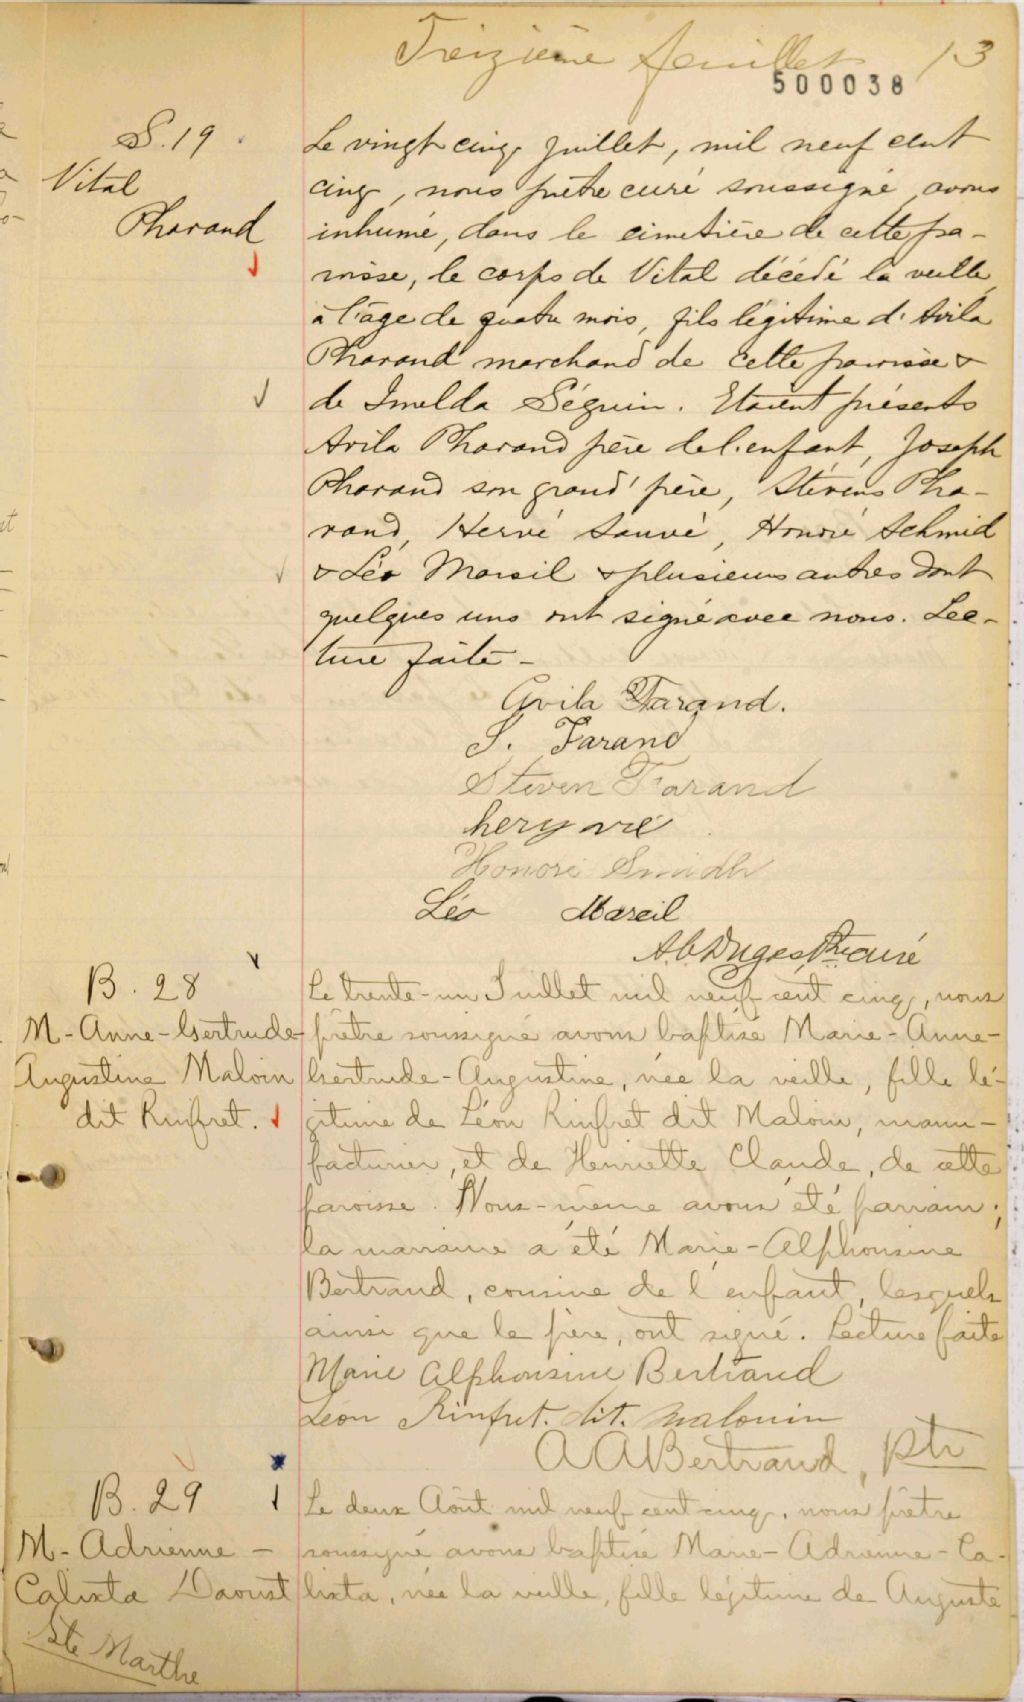 Treizième feuillet 13
500038
S. 19
Vital
Pharand
Le vingt cinq juillet, mil neuf cent
cinq, nous prêtre curé soussigné avons
inhumé, dans le cimetière de cette pa-
roisse, le corps de Vital décédé la veille,
à l'âge de quatre mois, fils légitime d'Avila
Pharand marchand de cette paroisse &
de Imelda Séguin. Etaient présents
Avila Pharand père de l'enfant, Joseph
Pharand son grand'père, Stévens Pha-
rand, Hervé Sauvé, Honoré Schmid
& Léo Marsil & plusieurs autres dont
quelques uns ont signé avec nous. Lec-
ture faite -
Avila Farand.
J. Farand
Steven Farand
Honoré Smidh
Léo Marcil
Ptre curé
B. 28
M-Anne-Gertrude-
Augustine Maloin
dit Rinfret.
Le trente-un Juillet mil neuf cent cinq, nous
prêtre soussigné avons baptisé Marie-Anne-
Gertrude-Augustine, née la veille, fille lé-
gitime de Léon Rinfret dit Maloin, manu-
facturier, et de Henriette Claude, de cette
paroisse. Nous-même avons été parrain;
la marraine a été Marie-Alphonsine
Bertrand, cousine de l'enfant, lesquels
ainsi que le père, ont signé. Lecture faite
Marie Alphonsine Bertrand
Léon Rinfret. dit. Malouin
A A Bertrand, Ptr
B. 29
M-Adrienne-
Calixta Daoust
Ste Marthe
Le deux Août mil neuf cent cinq, nous prêtre
soussigné avons baptisé Marie-Adrienne-Ca-
lixta, née la veille, fille légitime de Auguste